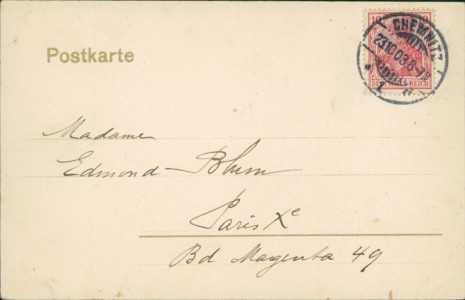 Postkarte
CHEMNITZ
23.10.03.6-7N.
1
10
REICH
Madame
Edmond-Blum
Paris Xe
Bd Magenta 49